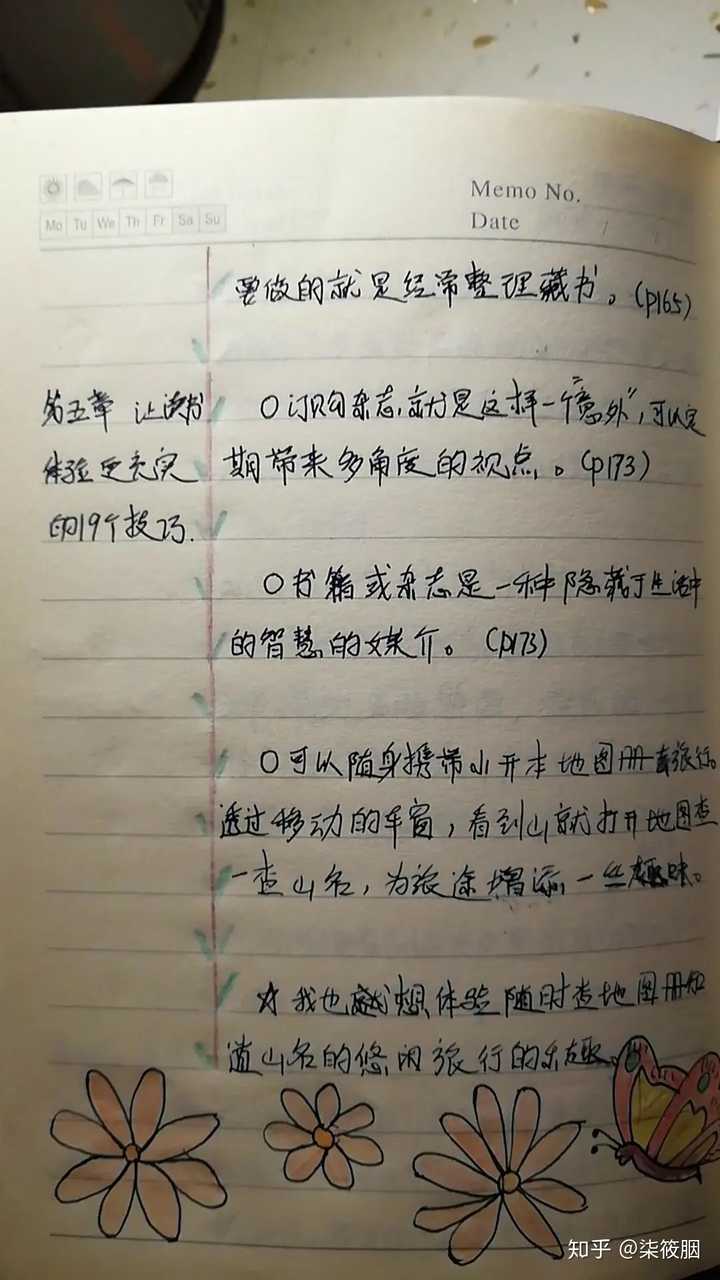 Memo No.
Date
Mo Tu We Th Fr Sa Su
要做的就是经常整理藏书。(p165)
第五章 让读书
体验更充实
的19个技巧.
〇订购杂志,就是这样一个"意外",可以定
期带来多角度的视点。(p173)
〇书籍或杂志是一种隐藏于生活中
的智慧的媒介。(p173)
〇可以随身携带小开本地图册去旅行。
透过移动的车窗,看到山就打开地图查
一查山名,为旅途增添一丝趣味。
☆我也想体验随时查地图册知
道山名的悠闲旅行的乐趣。
知乎 @柒筱胭